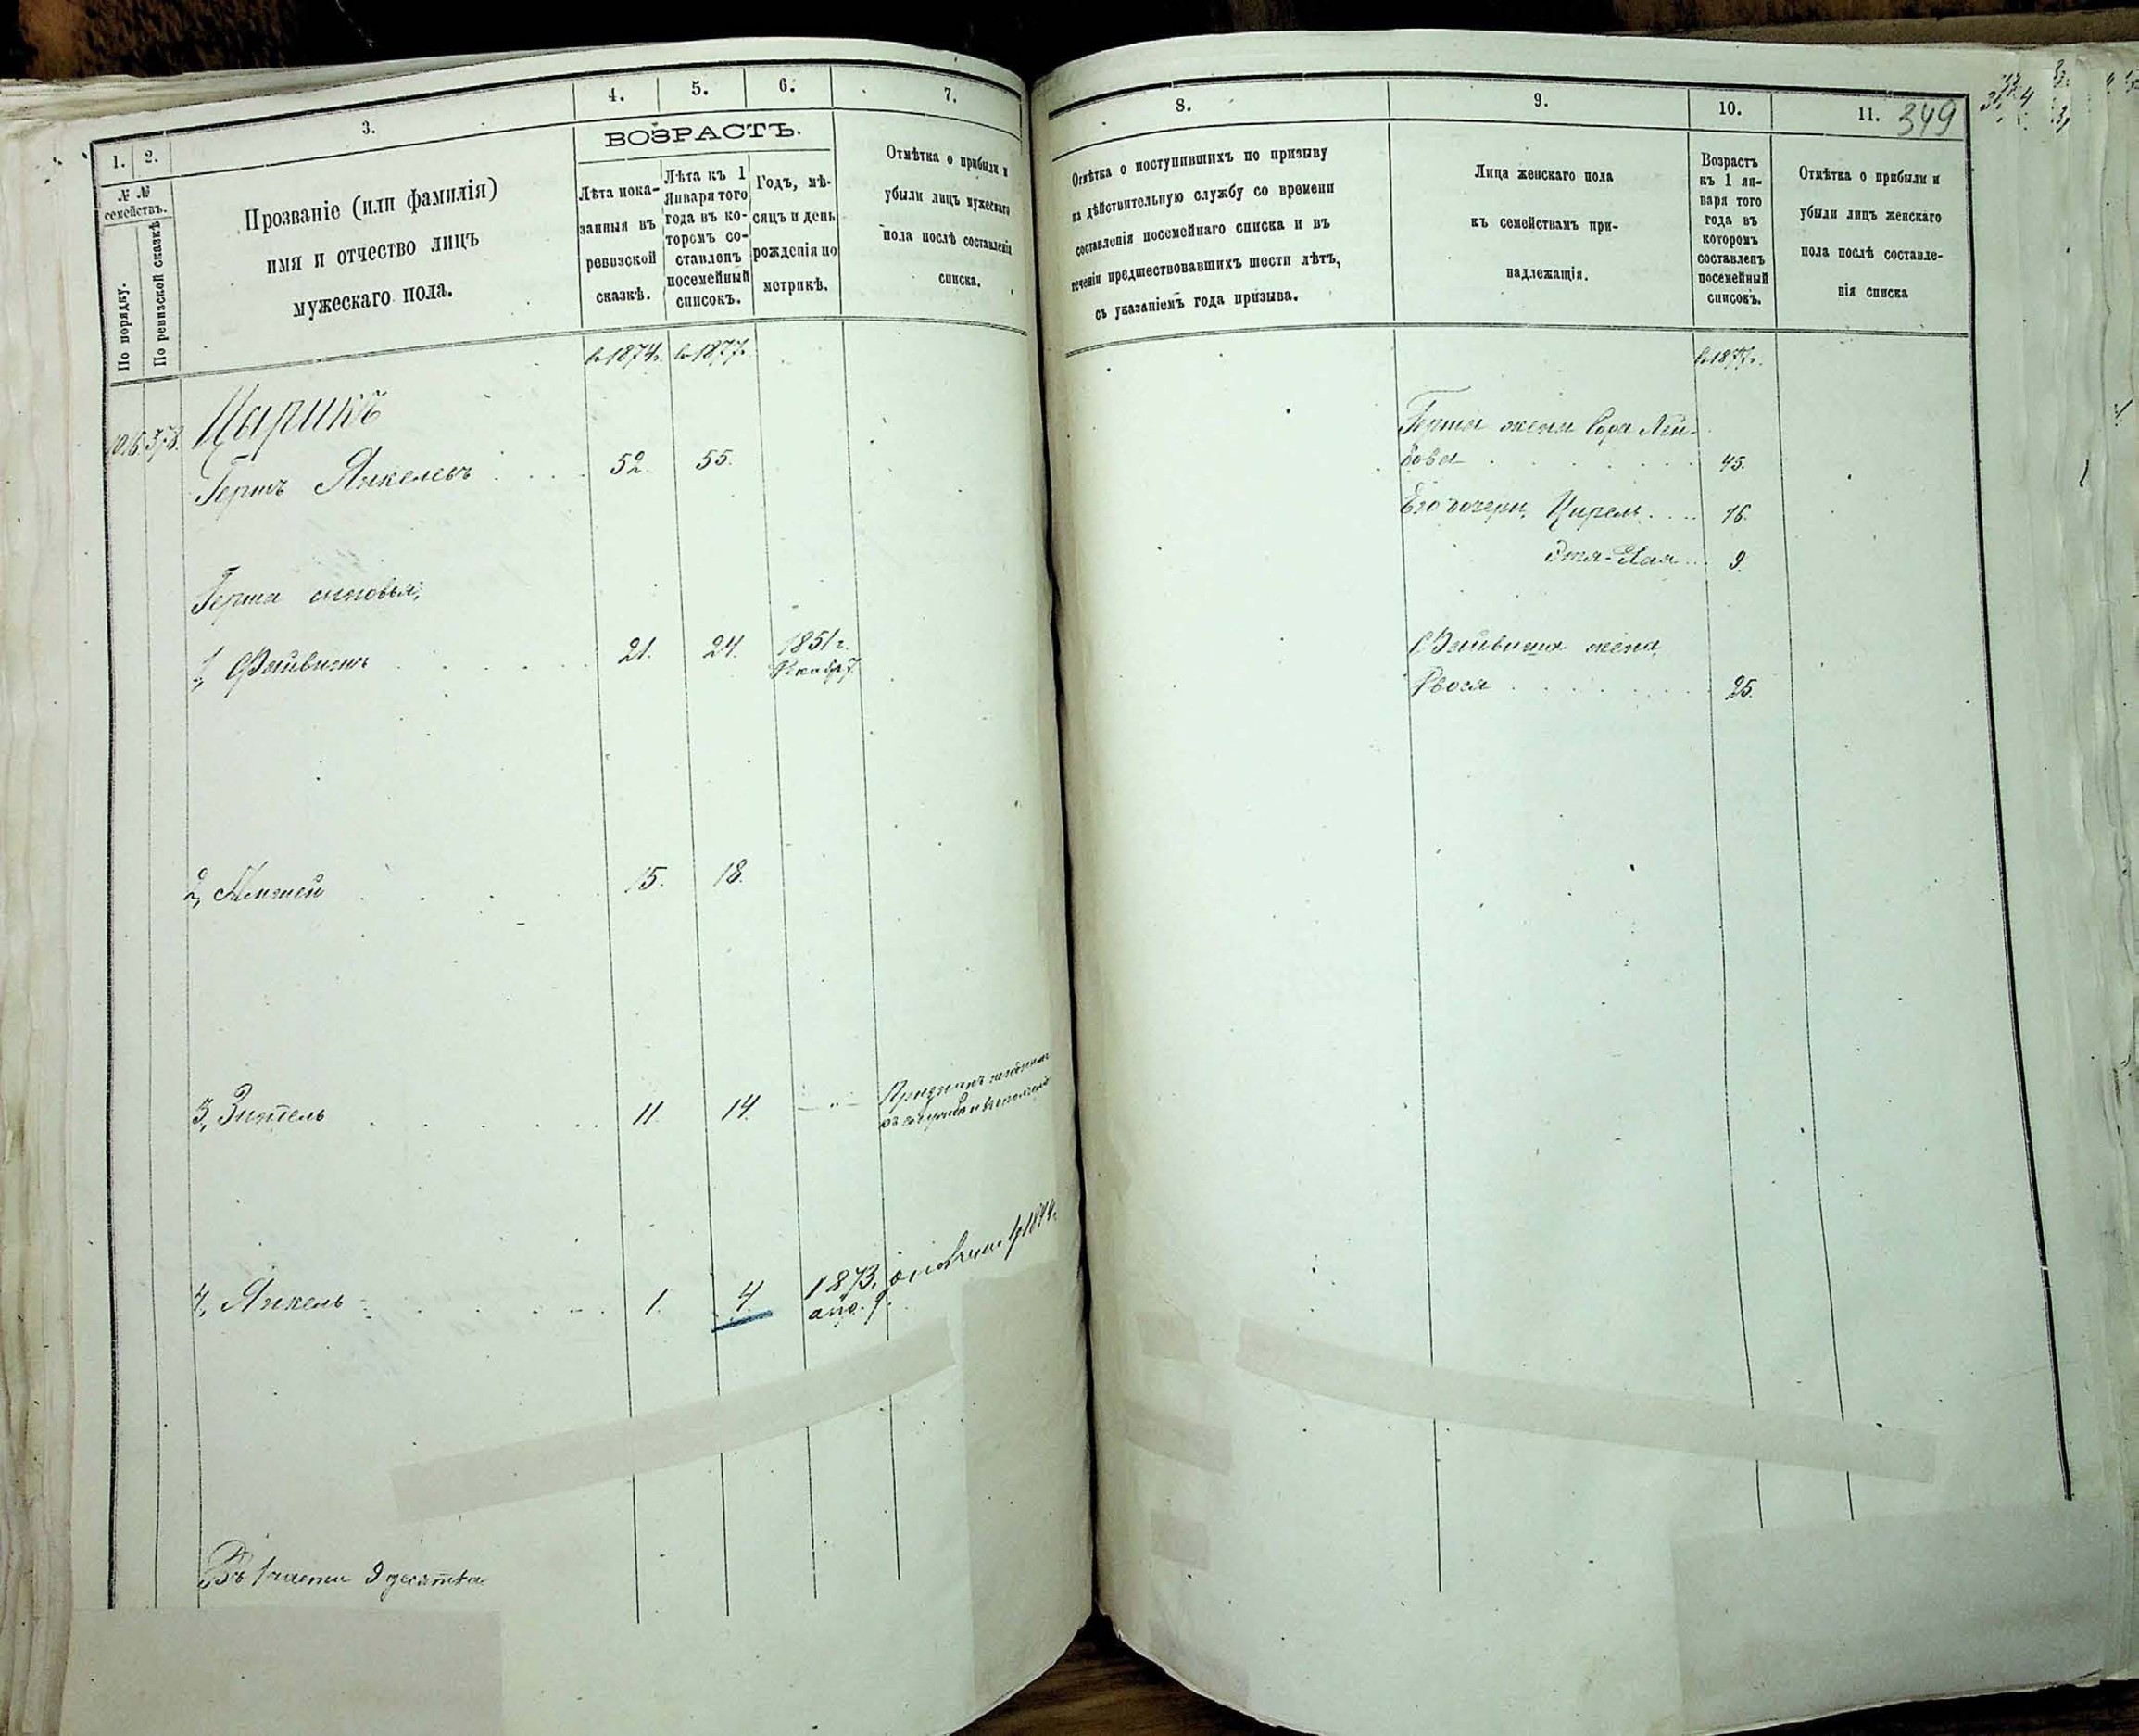 1.
2.
3.
4.
5.
6.
7.
№ №
семействъ.
По порядку.
По ревизской сказкѣ
Прозваніе (или фамилія)
имя и отчество лицъ
мужескаго пола.
ВОЗРАСТЪ.
Лѣта пока-
занныя въ
ревизской
сказкѣ.
Лѣта къ 1
Января того
года въ ко-
торомъ со-
ставленъ
посемейный
списокъ.
Годъ, мѣ-
сяцъ и день
рожденія по
метрикѣ.
Отмѣтка о прибыли и
убыли лицъ мужескаго
пола послѣ составленія
списка.
в 1874г. в 1877г.
Царикъ
Гершъ Янкелевъ 52. 55.
Герша сыновья,
1, Файвишъ 21. 24. 1851 г.
Декабря 7
2, 15. 18.
3, Зисель 11. 14. — " — Признанъ
4, Янкель 1. 4. 1873, 1894г.
апр. 9.
Въ участи 9 десятка
8.
9.
10.
11.
349
Отмѣтка о поступившихъ по призыву
на дѣйствительную службу со времени
составленія посемейнаго списка и въ
теченіи предшествовавшихъ шести лѣтъ,
съ указаніемъ года призыва.
Лица женскаго пола
къ семействамъ при-
надлежащія.
Возрастъ
къ 1 ян-
варя того
года въ
которомъ
составленъ
посемейный
списокъ.
Отмѣтка о прибыли и
убыли лицъ женскаго
пола послѣ составле-
нія списка
в 1877г.
Герша жена Сора Лей-
бова 45.
Его дочери, Цирель 16.
Этя-Хая 9.
Файвиша жена
Двося 25.